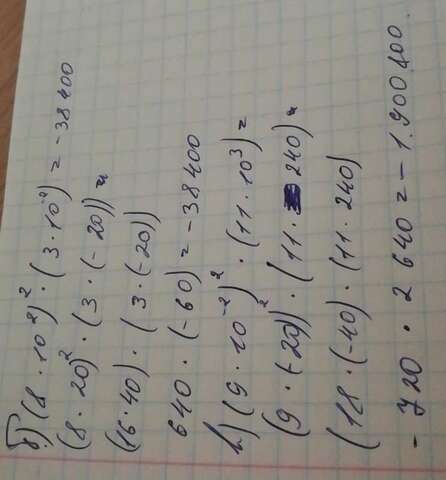 б) (8 · 10²)² · (3 · 10⁻²) = - 38 400
(8 · 20)² · (3 · (- 20)) =
(16 · 40) · (3 · (-20))
640 · (-60) = - 38 400
в) (9 · 10⁻²)² · (11 · 10³) =
(9 · (-20))² · (11 · 240) =
(18 · (-40) · (11 · 240)
- 720 · 2 640 = - 1.900 800